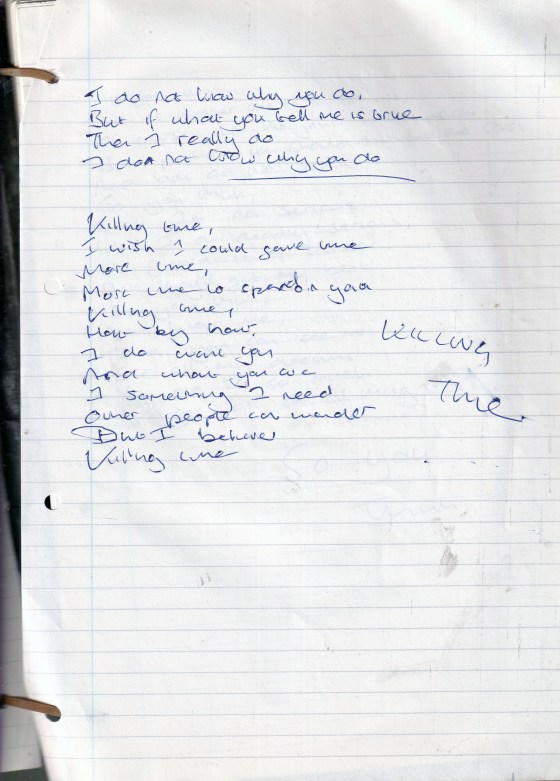 I do not know why you do,
But if what you tell me is true
Then I really do
I do not know why you do
Killing time,
I wish I could save time
More time,
More time to spend on you
Killing time,
Hour by hour.
I do want you
And what you are
I something I need
Other people can wonder
But I believe
Killing time
KILLING
Time.